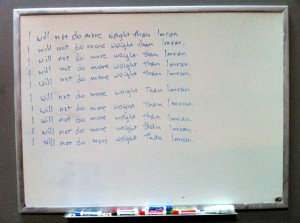 I will not do more weight than Imran.
I will not do more weight than Imran.
I will not do more weight than Imran.
I will not do more weight than Imran.
I will not do more weight than Imran.
I will not do more weight than Imran.
I will not do more weight than Imran.
I will not do more weight than Imran.
I will not do more weight than Imran.
I will not do more weight than Imran.